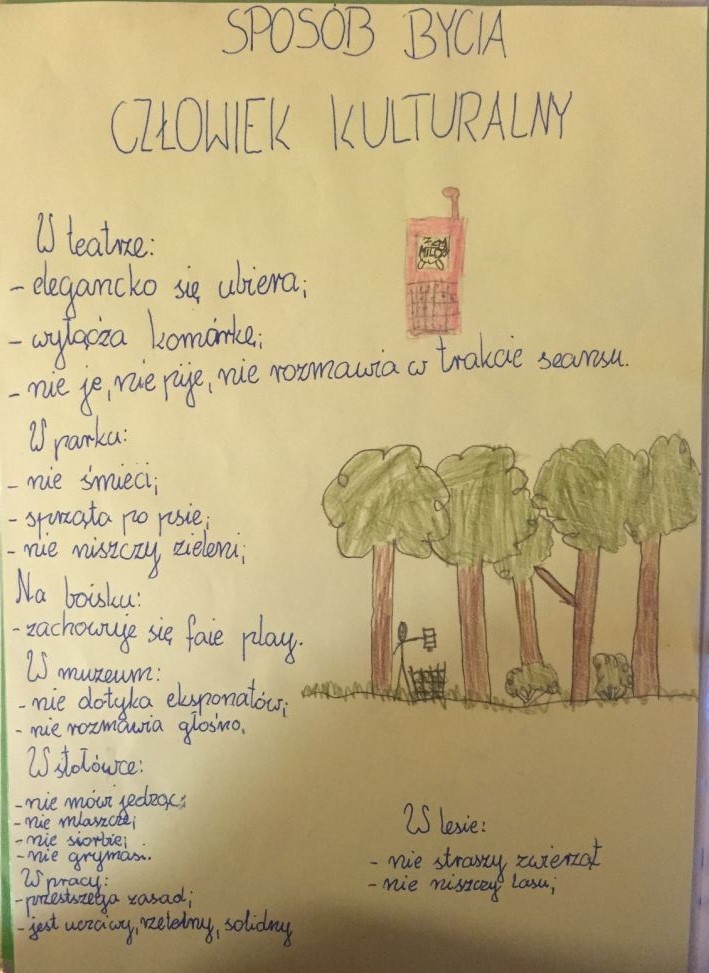 SPOSÓB BYCIA
CZŁOWIEK KULTURALNY
W teatrze:
- elegancko się ubiera;
- wyłącza komórkę;
- nie je, nie pije, nie rozmawia w trakcie seansu.
W parku:
- nie śmieci;
- sprząta po psie;
- nie niszczy zieleni;
Na boisku:
- zachowuje się faie play.
W muzeum:
- nie dotyka eksponatów;
- nie rozmawia głośno.
W stołówce:
- nie mówi jedząc;
- nie mlaszcze;
- nie siorbie;
- nie grymasi.
W pracy:
- przestrzega zasad;
- jest uczciwy, rzetelny, solidny
W lesie:
- nie straszy zwierząt
- nie niszczy lasu;